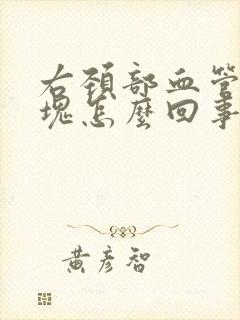 右頚部血管
塊怎麼回事
黃彥智